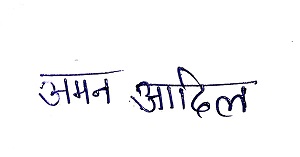 अमन आदिल